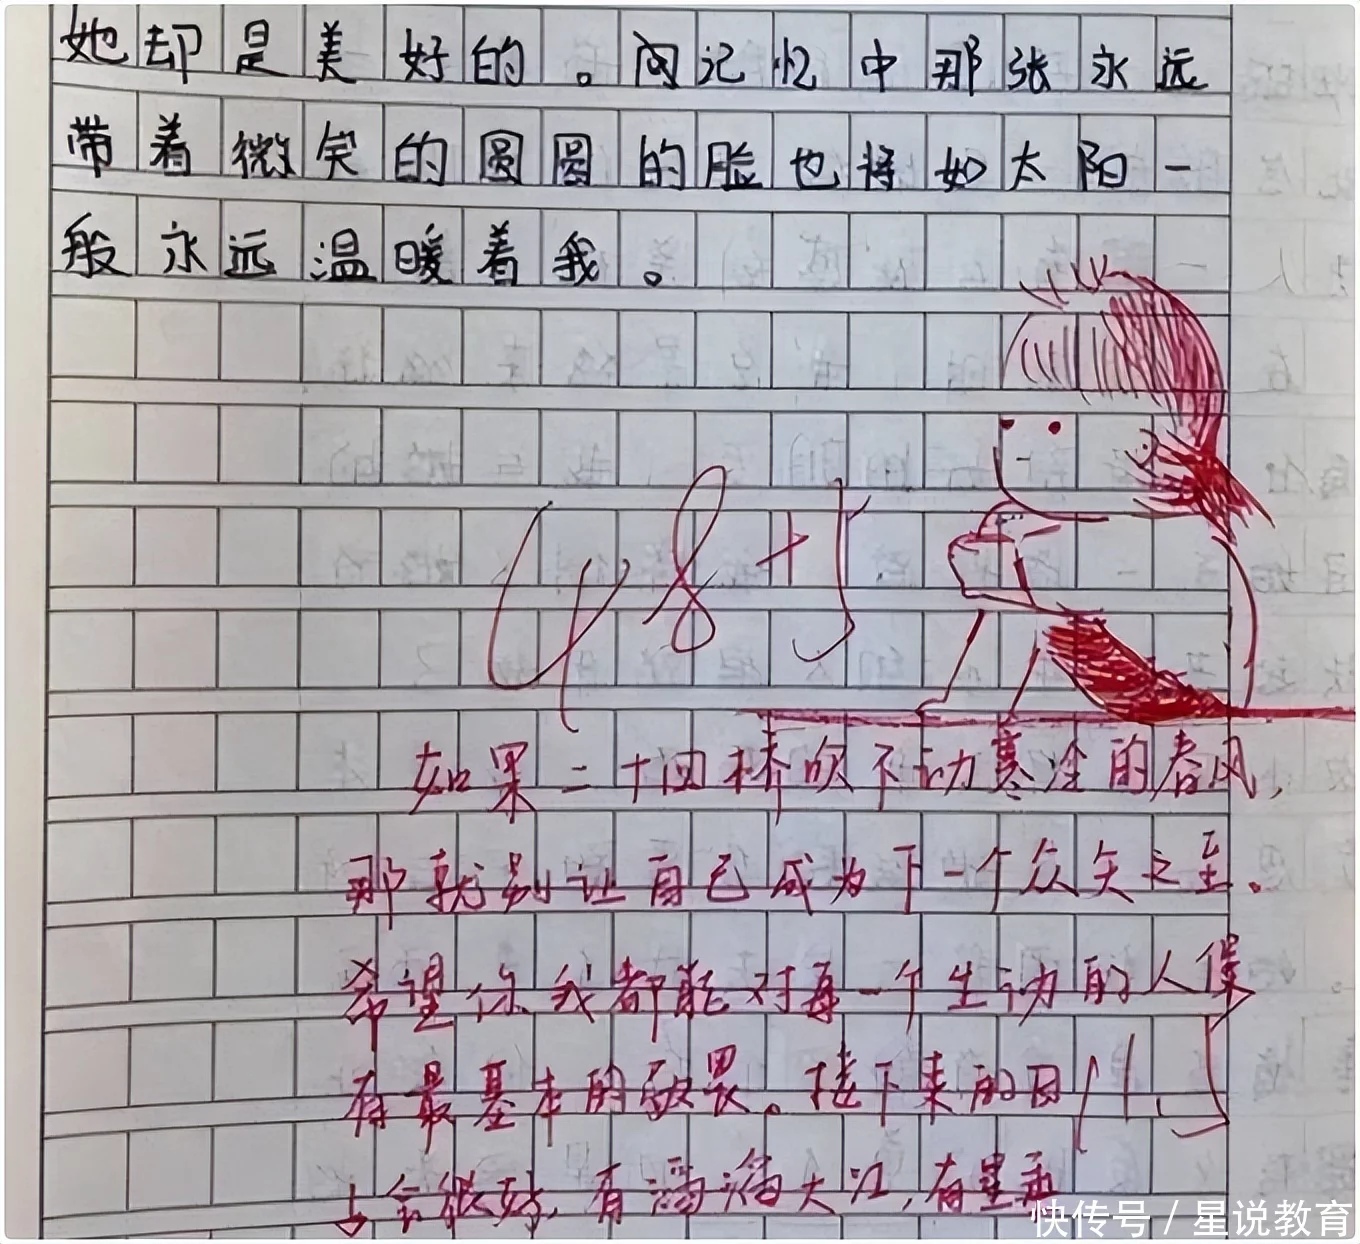 她却是美好的。而记忆中那张永远
带着微笑的圆圆的脸也将如太阳一
般永远温暖着我。
48+5
如果二十四桥吹不动寒冷的春风,
那就别让自己成为下一个众矢之至。
希望你我都能对每一个生动的人保
有最基本的敬畏。接下来的日
会很好,有滔滔大江,有星垂
快传号 / 星说教育